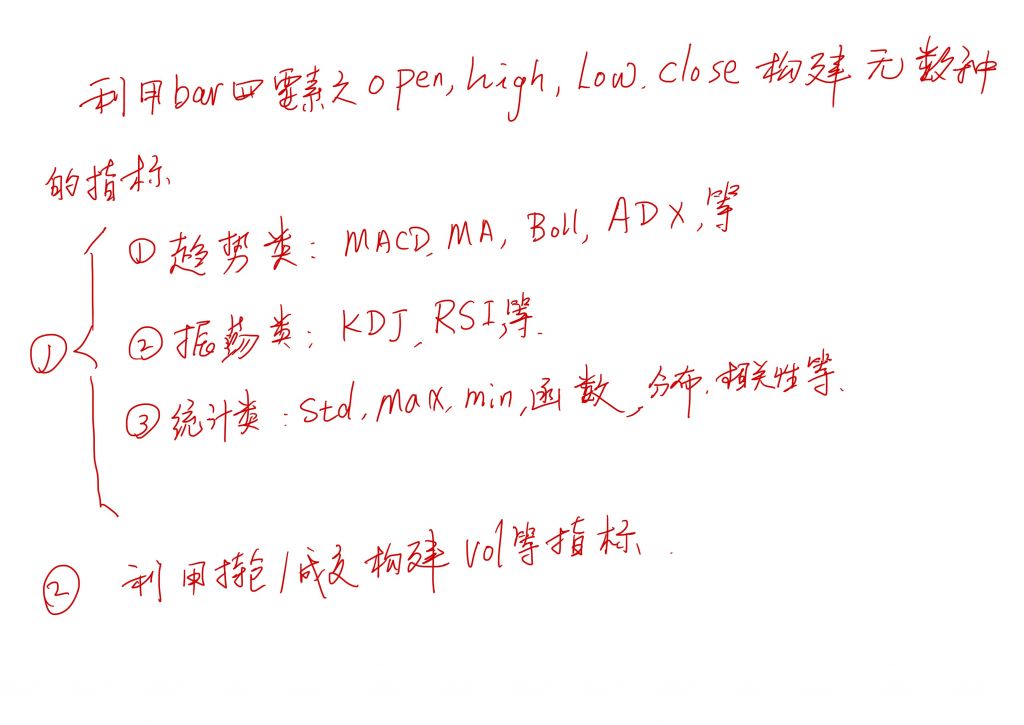 利用bar四要素之open, high, Low. close 构建 无数种
的指标
① ① 趋势类: MACD. MA, Boll, ADX, 等
② 振荡类: KDJ, RSI, 等.
③ 统计类: Std, max, min, 函数, 分布. 相关性等.
② 利用持仓/成交构建 vol等指标.